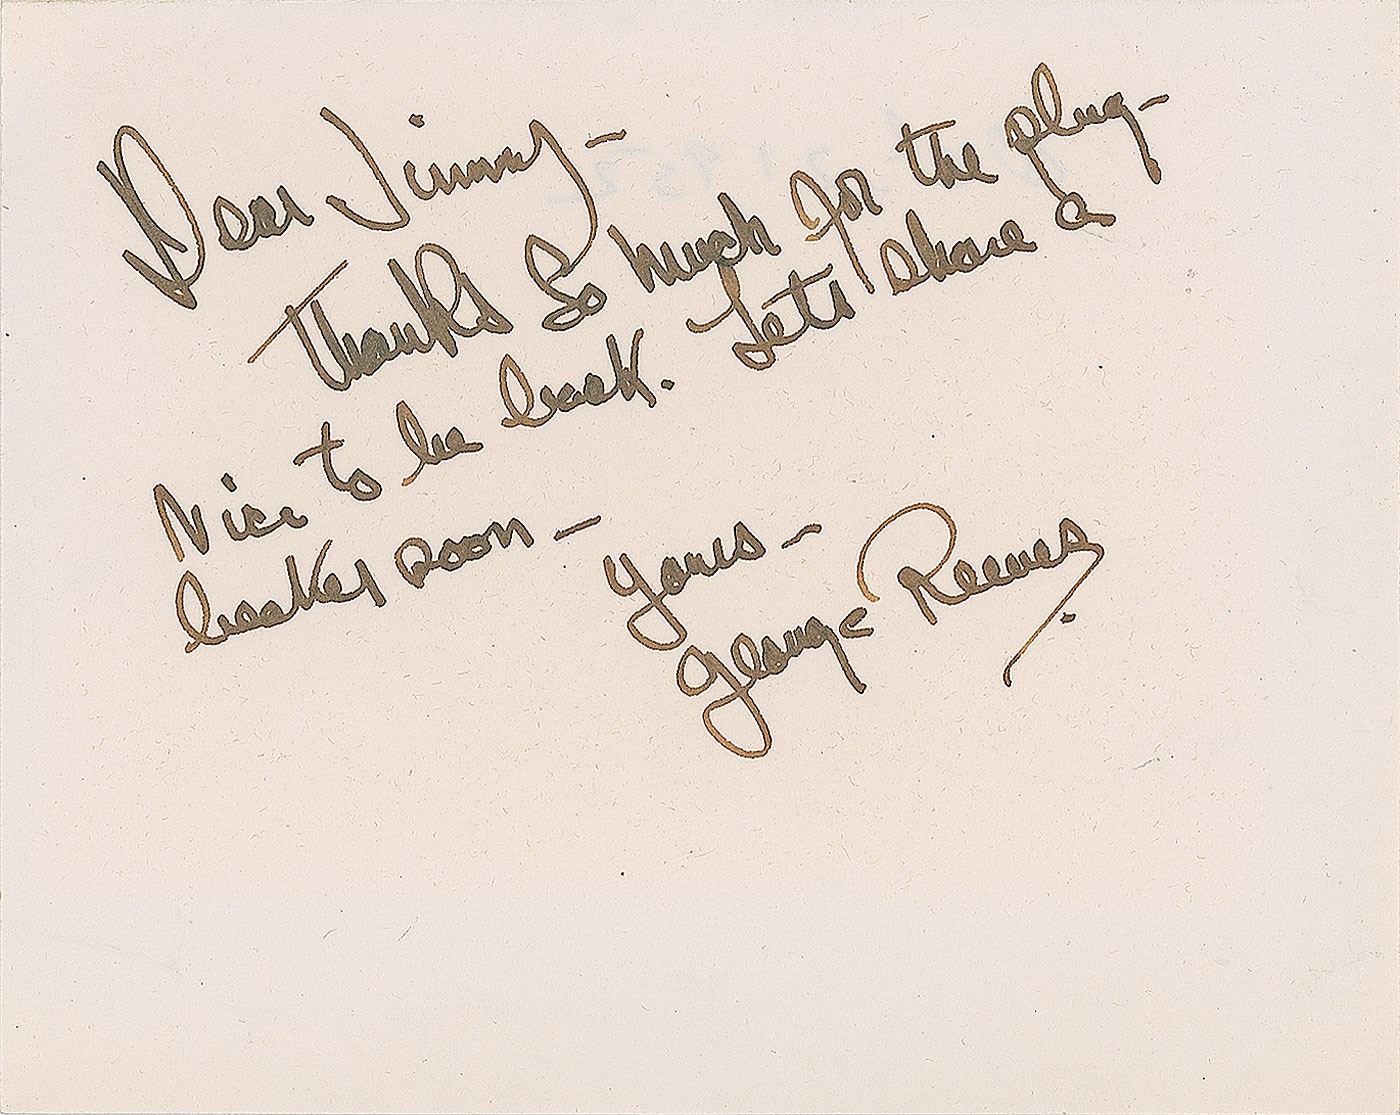 Dear Jimmy-
Thanks So much for the plug-
Nice to be back. Lets share a
beaker soon - Yours -
George Reeves